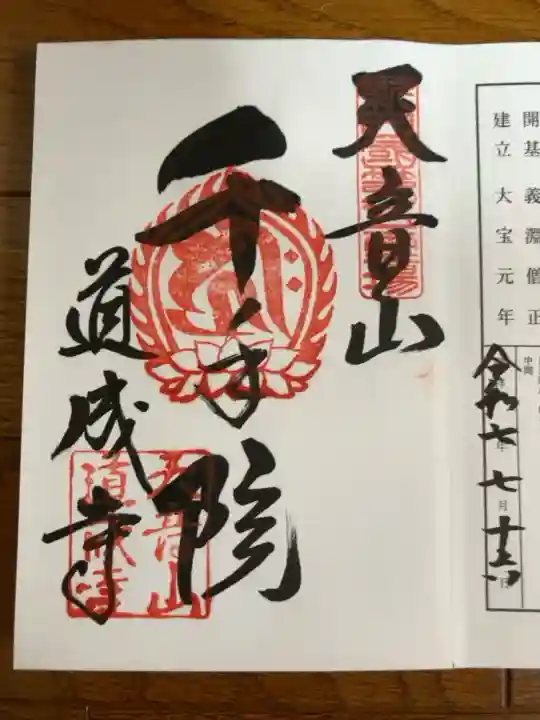 開基 義淵僧正
建立 大宝元年
令和七年七月十六日
天音山
千手院
道成寺
天音山
道成寺